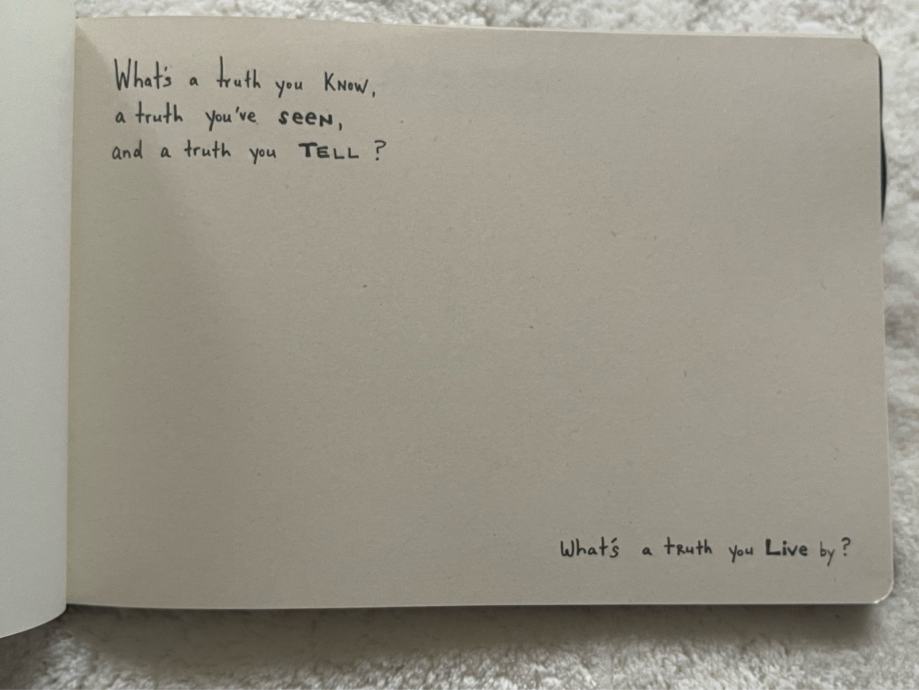 What's a truth you KNOW,
a truth you've seeN,
and a truth you TELL?
What's a tRuth you Live by?